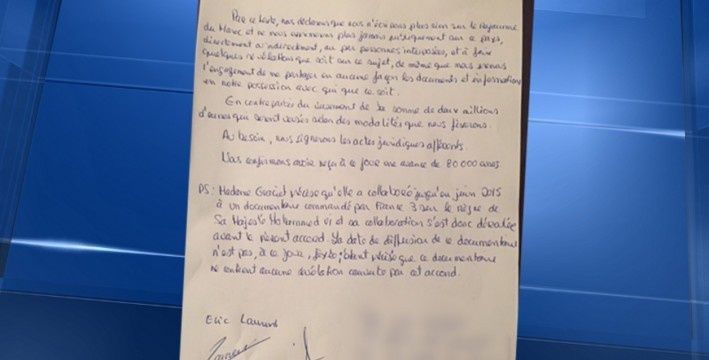 Par ce texte, nous déclarons que nous n'écrirons plus rien sur le Royaume
du Maroc et ne nous exprimerons plus jamais publiquement sur ce pays,
directement ou indirectement, ou par personnes interposées, et à faire
quelques révélations que ce soit sur ce sujet, de même que nous prenons
l'engagement de ne partager en aucune façon les documents et informations
en notre possession avec qui que ce soit.
En contrepartie du versement de la somme de deux millions
d'euros qui seront versés selon des modalités que nous fixerons.
Au besoin, nous signerons les actes juridiques afférents.
Nous confirmons avoir reçu à ce jour une avance de 80 000 euros.
PS: Madame Graciet précise qu'elle a collaboré jusqu'en juin 2015
à un documentaire commandé par France 3 sur le règne de
Sa Majesté Mohammed VI et sa collaboration s'est donc déroulée
avant le présent accord. La date de diffusion de ce documentaire
n'est pas, à ce jour, fixée; étant précisé que ce documentaire
ne contient aucune révélation couverte par cet accord.
Eric Laurent